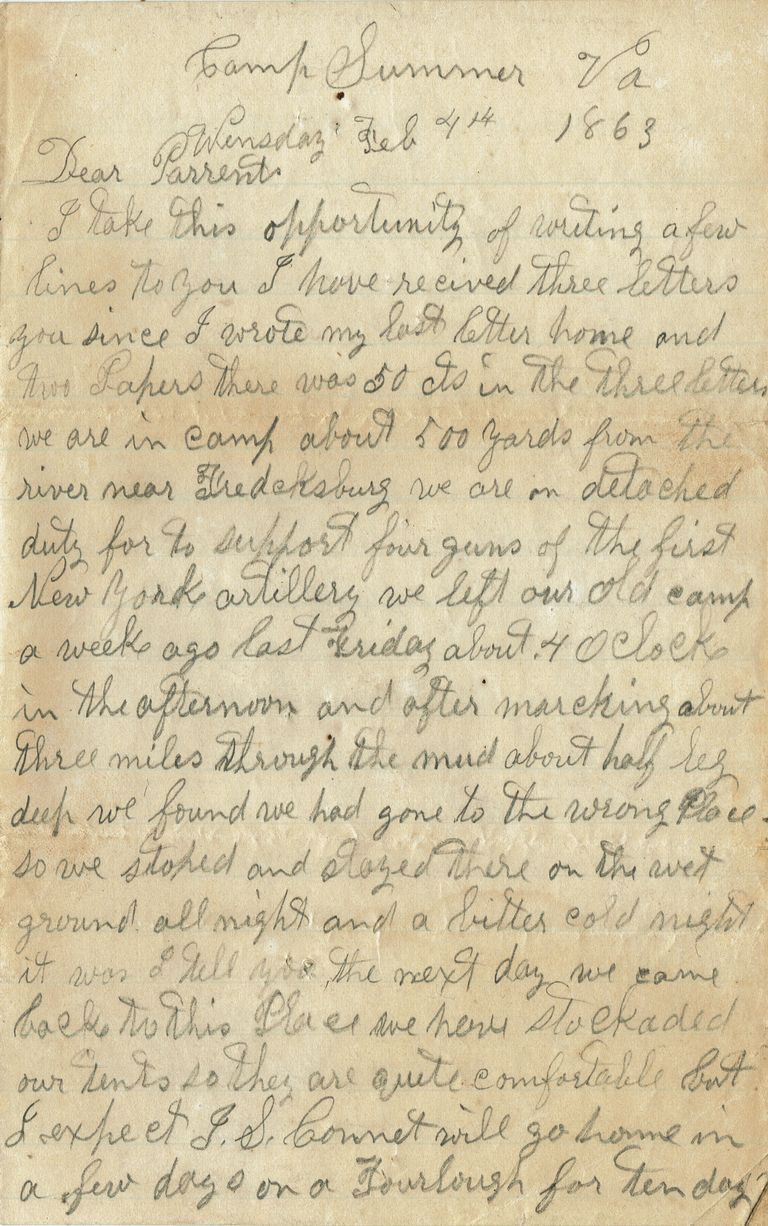 Camp Summer Va
Wensday Feb 4th 1863
Dear Parrents
I take this opportunity of writing a few
lines to you I have recived three letters
you since I wrote my last letter home and
two Papers there was 50 cts in the three letters
we are in camp about 500 yards from the
river near Fredcksburg we are on detached
duty for to support four guns of the first
New York artillery we left our old camp
a week ago last Friday about 4 O clock
in the afternoon and after marcking about
three miles through the mud about half leg
deep we found we had gone to the wrong Place.
so we stoped and stayed there on the wet
ground all night and a bitter cold night
it was I tell you, the next day we came
back to this Place we have stockaded
our tents so they are quite comfortable but
I expect J. S. Connet will go home in
a few days on a Fourlough for ten days